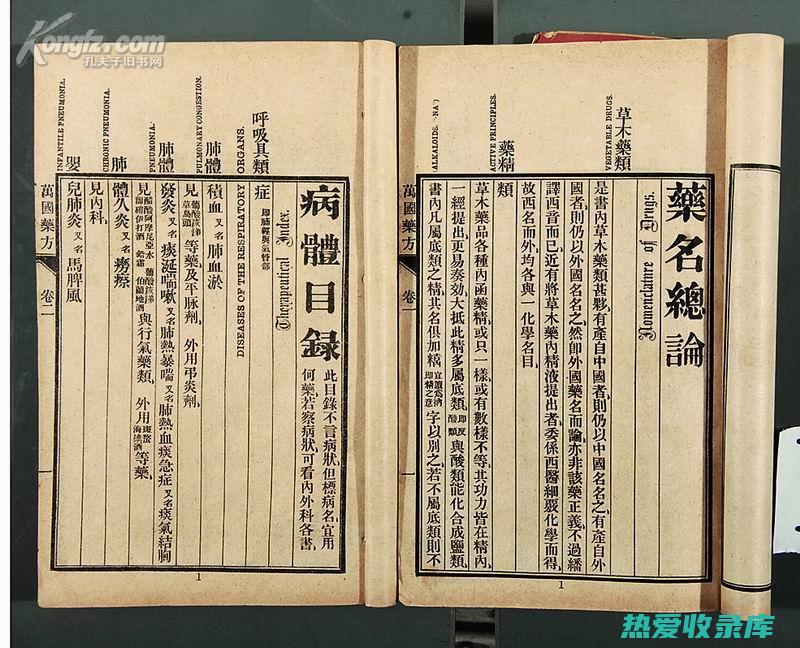 Kongfz.com
孔夫子旧书网
藥名總論
Nomenclature of Drugs.
草木藥類
VEGETABLE DRUGS.
是書內草木藥類甚夥有產自中國者則仍以中國名名之有產自外
國者則仍以外國名名之然卽外國藥名而論亦非該藥正義不過繙
譯西音而已近有將草木藥內精液提出者委係西醫細 化學而得
故西名而外均各與一化學名目
藥精類
ACTIVE PRINCIPLES.
草木藥品各種內函藥精或只一樣或有數樣不等其功力皆在精內
一經提出更易奏効大抵此精多屬底類卽反酸類與酸類能化合成鹽類
ALKALOIDS.
書內凡屬底類之精其名俱加 宜讀爲 卽精之意字以別之若不屬底類則不
萬國藥方 卷二 一
1
病體目錄
Therapeutical Index.
此目錄不言病狀但標病名宜用
何藥若察病狀可看內外科各書
呼吸具類症卽肺經與氣管部
DISEASES OF THE RESPIRATORY
ORGANS.
肺體積血又名肺血淤
PULMONARY CONGESTION.
見 草烏頭等藥及平脉劑 外用弔炎劑
肺體發炎又名痰涎喘嗽又名肺熱暴喘又名肺熱血痰急症又名痰氣結胸
PNEUMONIA.
見醋酸阿摩尼亞水 與行氣藥類 外用斑蝥 等藥
肺體久炎又名癆瘵
CHRONIC PNEUMONIA.
見內科
嬰兒肺炎又名馬脾風
INFANTILE PNEUMONIA.
萬國藥方 卷二 一
1
热爱收录库